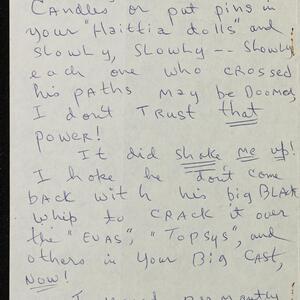 Candles or put pins in
your "Haittia dolls" and
slowly, slowly -- slowly
each one who crossed
his paths may be doomed,
I don't TRUST that
power!
It did shake me up!
I hope he don't come
back with his big BLACK
whip to CRACK it over
the "EVAS", "TOPSYS", and
others in your Big CAST,
NOW!